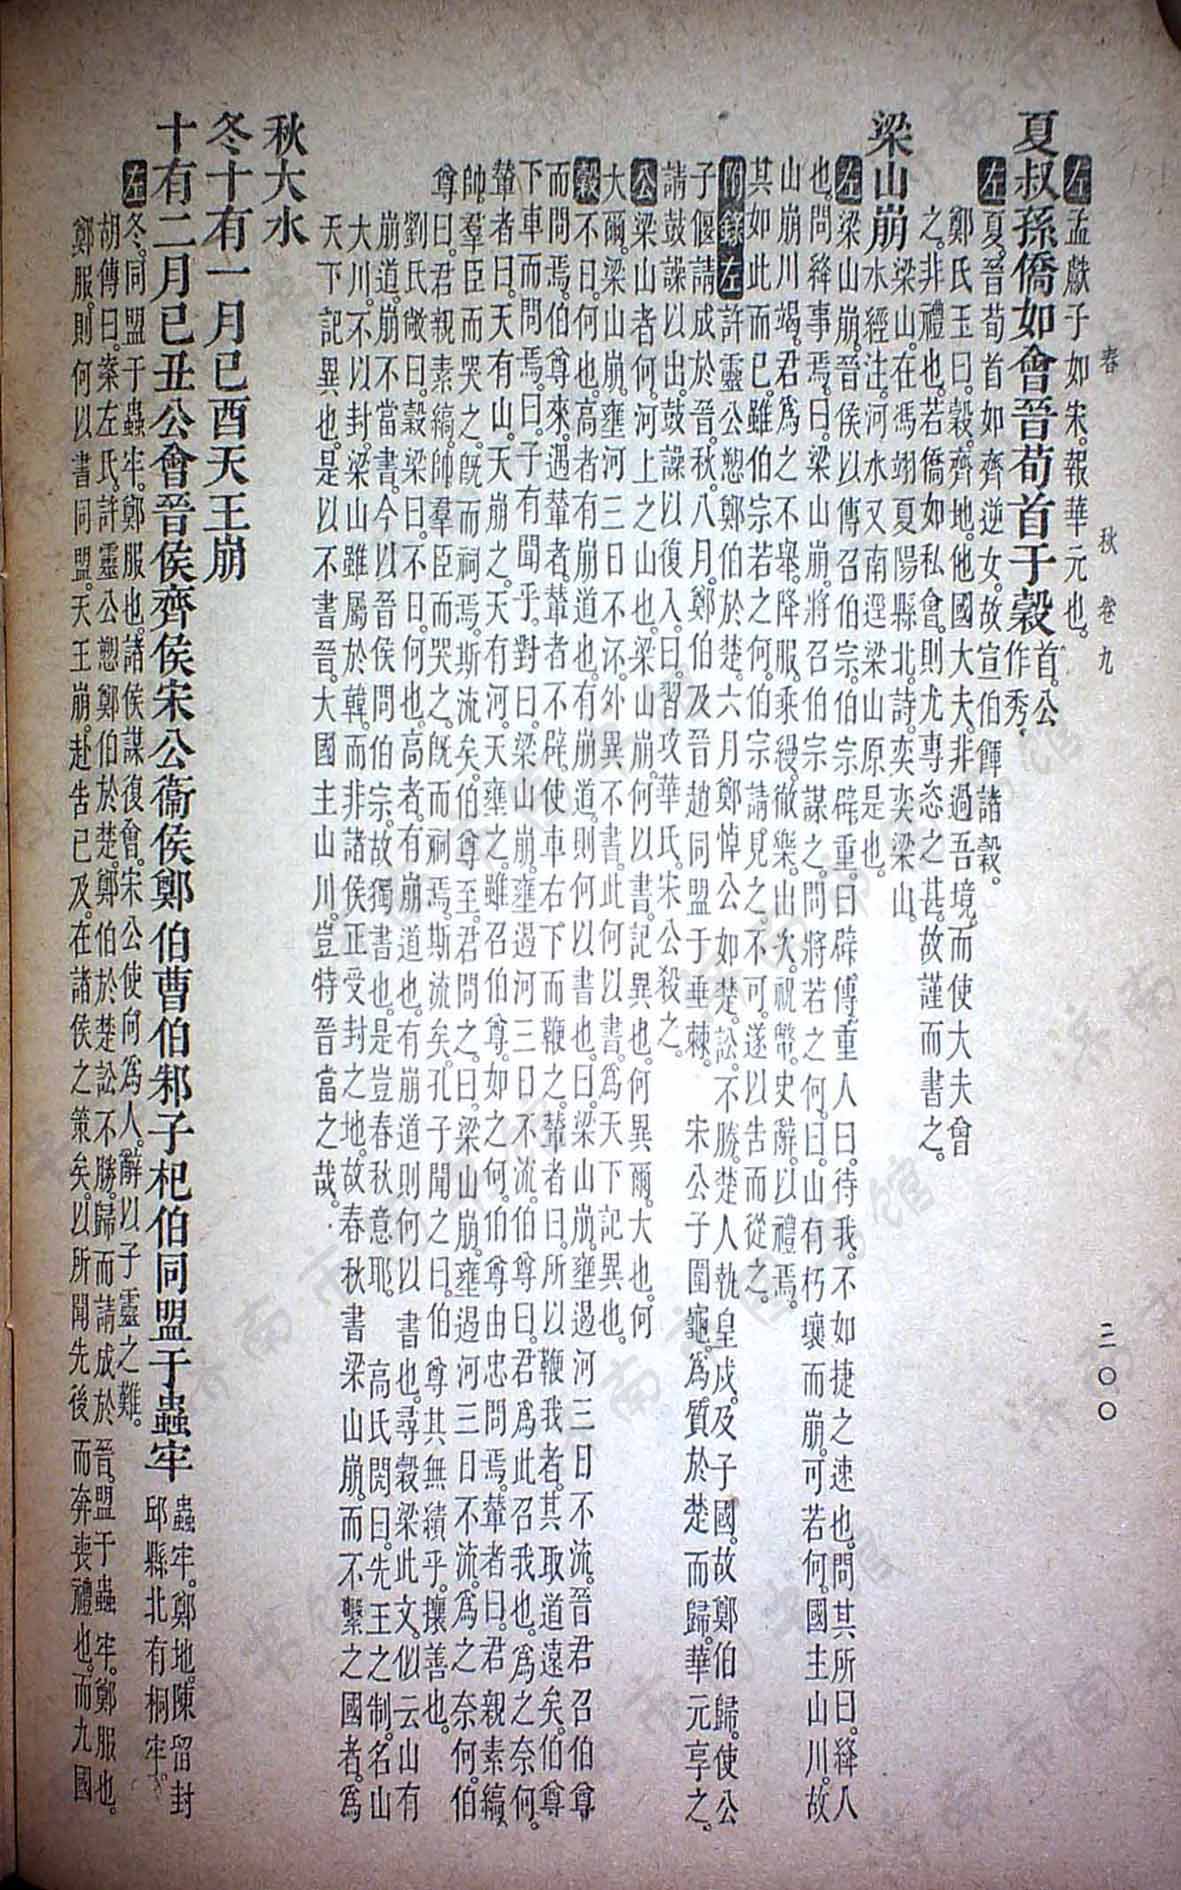 春　秋　卷九
二〇〇
左孟獻子如宋。報華元也。
夏叔孫僑如會晉荀首于穀首。公作秀。
左夏。晉荀首如齊逆女。故宣伯餫諸穀。
鄭氏玉曰。穀。齊地。他國大夫。非過吾境。而使大夫會
之。非禮也。若僑如私會。則尤專恣之甚。故謹而書之。
梁山崩梁山。在馮翊夏陽縣北。詩。奕奕梁山。
水經注。河水又南逕梁山原是也。
左梁山崩。晉侯以傳召伯宗。伯宗辟重。曰辟傳。重人曰。待我。不如捷之速也。問其所。曰。絳人
也。問絳事焉。曰。梁山崩。將召伯宗謀之。問將若之何。曰。山有朽壤而崩。可若何。國主山川。故
山崩川竭。君爲之不舉。降服。乘縵。徹樂。出次。祝幣。史辭。以禮焉。
其如此而已。雖伯宗若之何。伯宗請見之。不可。遂以告而從之。
附錄左許靈公愬鄭伯於楚。六月。鄭悼公如楚。訟。不勝。楚人執皇戌。及子國。故鄭伯歸。使公
子偃請成於晉。秋。八月。鄭伯及晉趙同盟于垂棘。　宋公子圍龜。爲質於楚而歸。華元享之。
請鼓譟以出。鼓譟以復入。曰。習攻華氏。宋公殺之。
公梁山者何。河上之山也。梁山崩。何以書。記異也。何異爾。大也。何
大爾。梁山崩。壅河三日不沠。外異不書。此何以書。爲天下記異也。
穀不日。何也。高者有崩道也。有崩道。則何以書也。曰。梁山崩。壅遏河三日不流。晉君召伯尊
而問焉。伯尊來。遇輦者。輦者不辟。使車右下而鞭之。輦者曰。所以鞭我者。其取道遠矣。伯尊
下車而問焉。曰。子有聞乎。對曰。梁山崩。壅遏河三日不流。伯尊曰。君爲此召我也。爲之奈何。
輦者曰。天有山。天崩之。天有河。天壅之。雖召伯尊。如之何。伯尊由忠問焉。輦者曰。君親素縞。
帥羣臣而哭之。旣而祠焉。斯流矣。伯尊至。君問之。曰。梁山崩。壅遏河三日不流。爲之奈何。伯
尊曰。君親素縞。帥羣臣而哭之。旣而祠焉。斯流矣。孔子聞之曰。伯尊其無績乎。攘善也。
劉氏敞曰。穀梁曰。不日。何也。高者。有崩道也。有崩道則何以書也。尋穀梁此文。似云山有
崩道。崩不當書。今以晉侯問伯宗。故獨書也。是豈春秋意耶。　高氏閌曰。先王之制。名山
大川。不以封。梁山雖屬於韓。而非諸侯正受封之地。故春秋書梁山崩。而不繫之國者。爲
天下記異也。是以不書晉。大國主山川。豈特晉當之哉。
秋大水
冬十有一月己酉天王崩
十有二月己丑公會晉侯齊侯宋公衞侯鄭伯曹伯邾子杞伯同盟于蟲牢蟲牢。鄭地。陳留封
邱縣北有桐牢。
左冬。同盟于蟲牢。鄭服也。諸侯謀復會。宋公使向爲人。辭以子靈之難。
胡傳曰。案左氏。許靈公愬鄭伯於楚。鄭伯於楚訟不勝。歸而請成於晉。盟于蟲牢。鄭服也。
鄭服。則何以書同盟。天王崩。赴告已及。在諸侯之策矣。以所聞先後而奔喪禮也。而九國